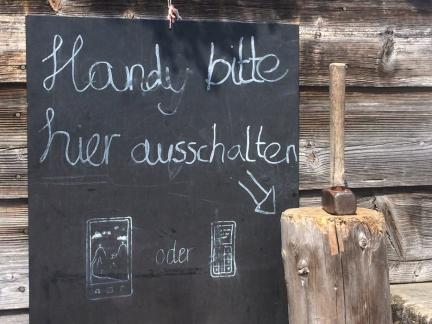 Handy bitte
hier ausschalten
oder